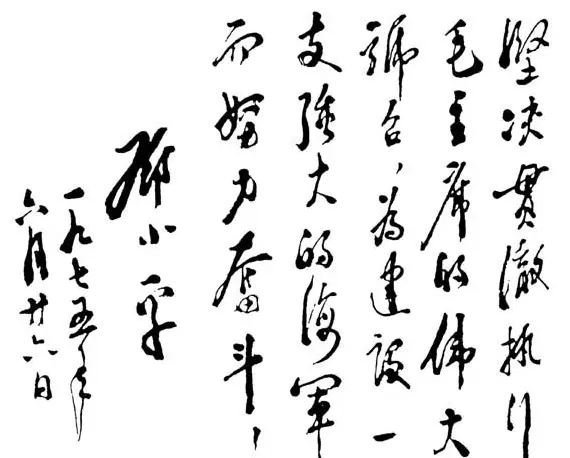 坚决贯澈执行
毛主席的伟大
号召，为建设一
支强大的海军
而努力奋斗！
邓小平
一九七五年
六月廿六日